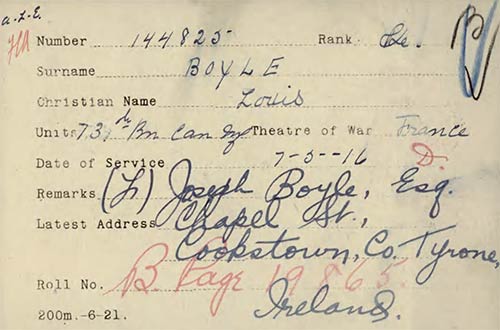 a.L.E.
Number 144825 Rank Pte.
Surname BOYLE
Christian Name Louis
Units 73rd Bn Can Theatre of War France
Date of Service 7-5-16 D.
Remarks (F) Joseph Boyle, Esq.
Latest Address Chapel St.,
Cookstown, Co. Tyrone,
Roll No. B. Page 19865.
Ireland.
200m.-6-21.